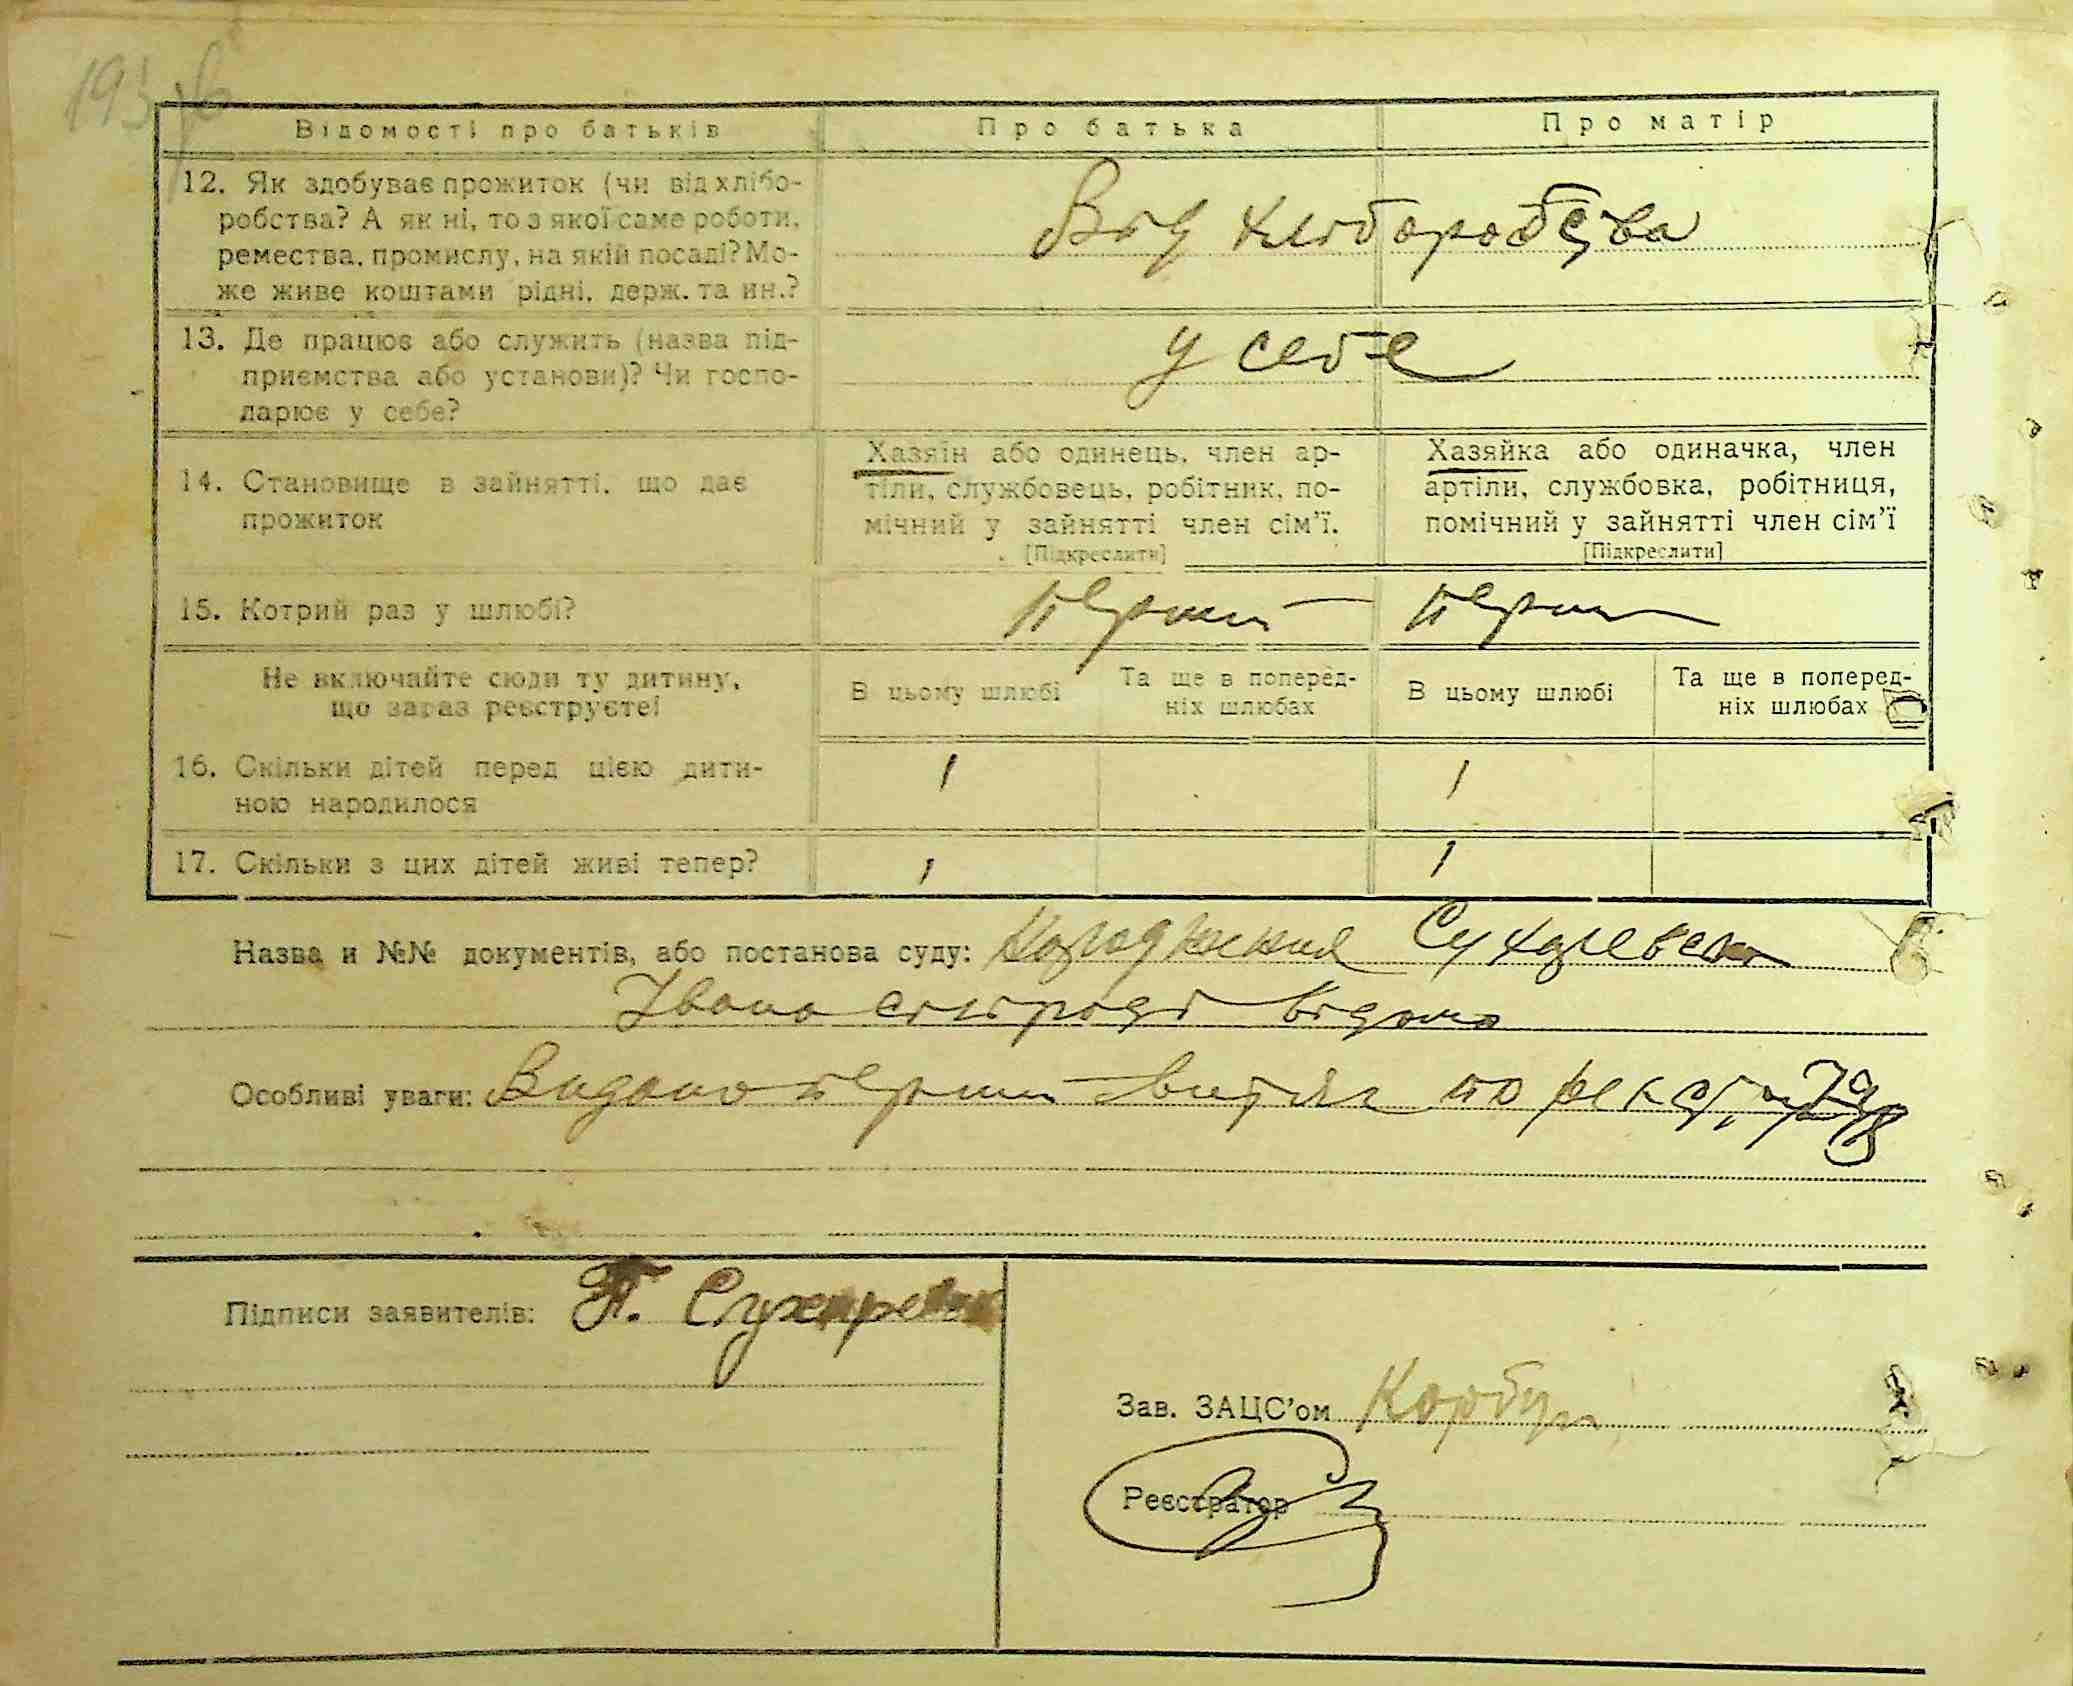 Відомості про батьків
Про батька
Про матір
12. Як здобуває прожиток (чи від хлібо-
робства? А як ні, то з якої саме роботи,
ремества, промислу, на якій посаді? Мо-
же живе коштами рідні, держ. та ин.?
Від хліборобства
13. Де працює або служить (назва під-
приємства або установи)? Чи госпо-
дарює у себе?
у себе
14. Становище в зайнятті, що дає
прожиток
Хазяїн або одинець, член ар-
тіли, службовець, робітник, по-
мічний у зайнятті член сім’ї.
[Підкреслити]
Хазяйка або одиначка, член
артіли, службовка, робітниця,
помічний у зайнятті член сім’ї
[Підкреслити]
15. Котрий раз у шлюбі?
перший
перший
Не включайте сюди ту дитину,
що зараз реєструєте!
В цьому шлюбі
Та ще в поперед-
ніх шлюбах
В цьому шлюбі
Та ще в поперед-
ніх шлюбах
16. Скільки дітей перед цією дити-
ною народилося
1
1
17. Скільки з цих дітей живі тепер?
1
1
Назва и №№ документів, або постанова суду:
Івана сільраді відомо
Особливі уваги: Видано перший витяг по
Підписи заявителів: П.
Зав. ЗАЦС’ом
Реєстратор